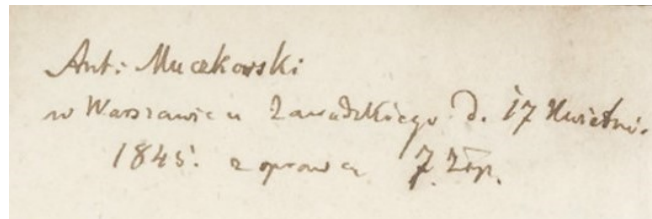 Ant: Muczkowski
w Warszawie u Zawadzkiego d. 17 Kwietni.
1845. z oprawą 7. Złp.